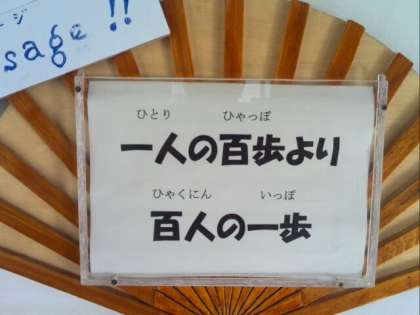 ージ
sage !!
ひとり ひゃっぽ
一人の百歩より
ひゃくにん いっぽ
百人の一歩